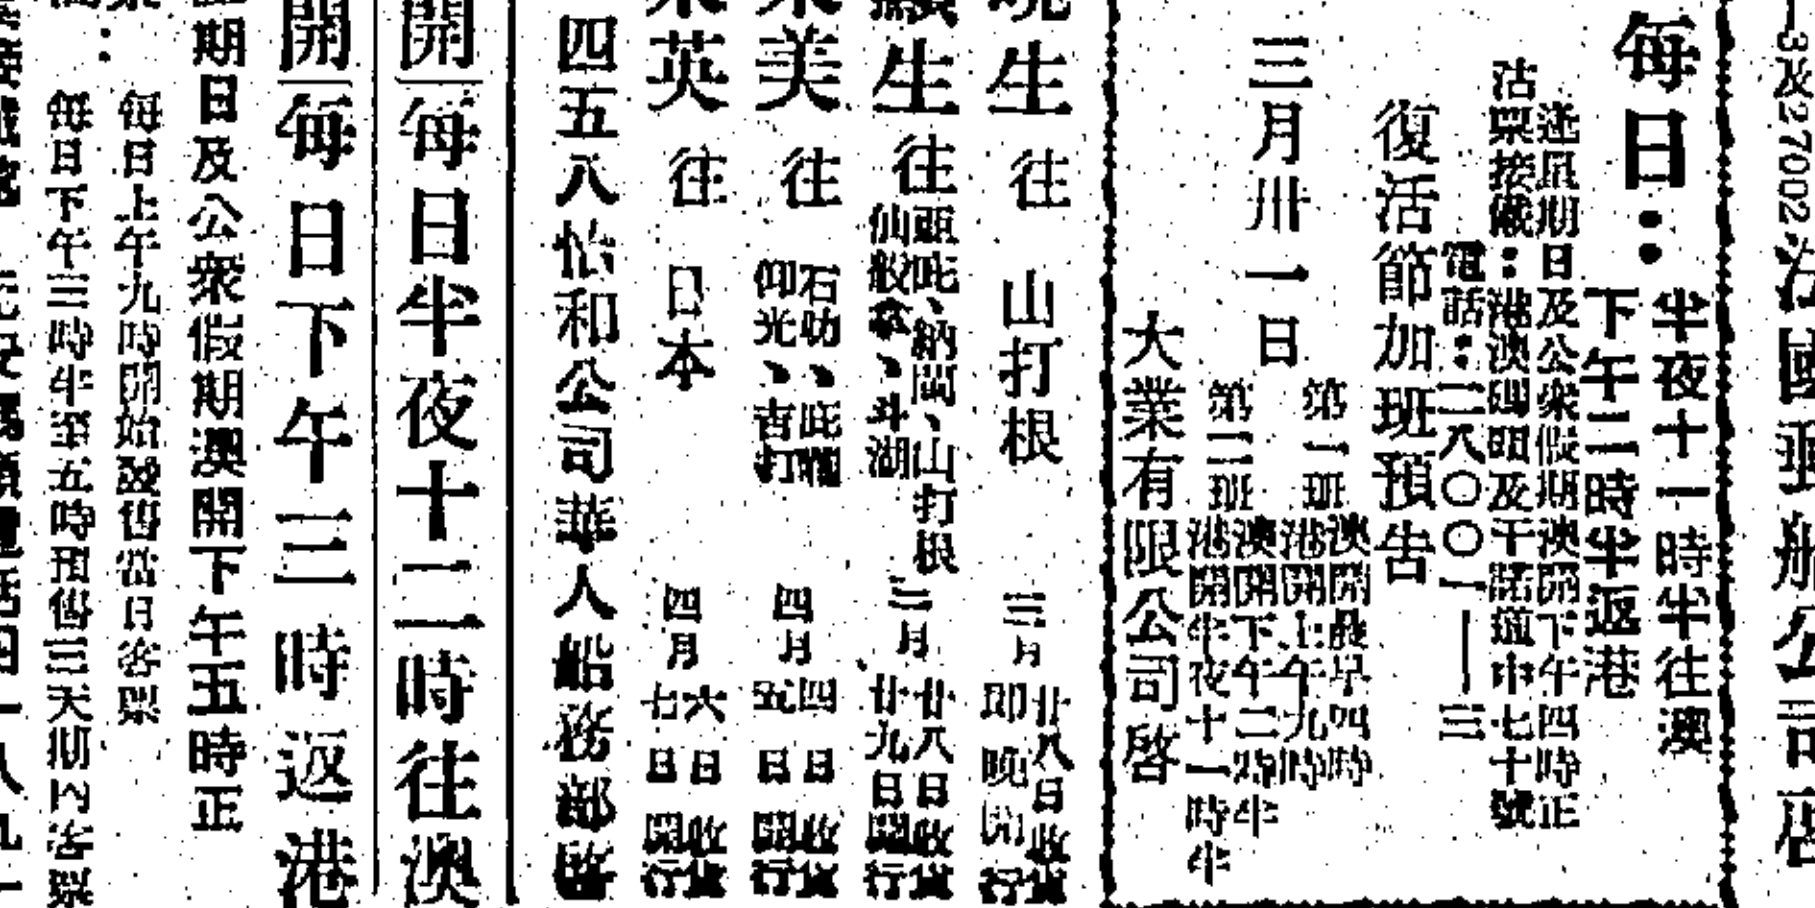 3及27002
法國郵船公司啓
每日：
半夜十一時半往澳
下午二時半返港
逢星期日及公衆假期澳開下午四時正
沽票接儎：港澳碼頭及干諾道中七十號
電話：二八〇〇一——三
復活節加班預告
三月卅一日
第一班
澳開晨早四時
港開上午九時
第二班
澳開下午二時半
港開半夜十一時半
大業有限公司啓
生
往
山打根
三月
廿八日收貨
即晚開行
生
往
亜庇、納閩、山打根
仙般拿、斗湖
三月
廿八日收貨
廿九日開行
美
往
石叻、庇能
仰光、吉打
四月
四日收貨
五日開行
英
往
日本
四月
六日收貨
七日開行
四五八怡和公司華人船務部啓
開
每日半夜十二時往澳
開
每日下午三時返港
期日及公衆假期澳開下午五時正
每日上午九時開始發售當日客票
：
每日下午三時半至五時預售三天期內客票